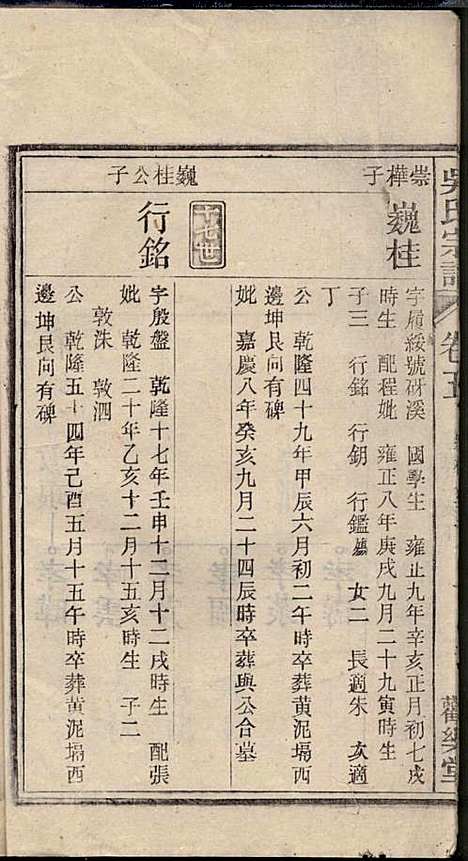 吳氏宗譜 卷五 歡樂堂
崇樺子
巍桂
字履綏號砑溪 國學生 雍正九年辛亥正月初七戌
時生 配程妣 雍正八年庚戌九月二十九寅時生
子三 行銘 行鈅 行鑑 女二 長適朱 次適
丁
公 乾隆四十九年甲辰六月初二午時卒葬黄泥塥西
邊坤艮向有碑
妣 嘉慶八年癸亥九月二十四辰時卒葬與公合墓
十七世
巍桂公子
行銘
字殷盤 乾隆十七年壬申十二月十二戌時生 配張
妣 乾隆二十年乙亥十二月十五亥時生 子二
敦洙 敦泗
公 乾隆五十四年己酉五月十五午時卒葬黄泥塥西
邊坤艮向有碑